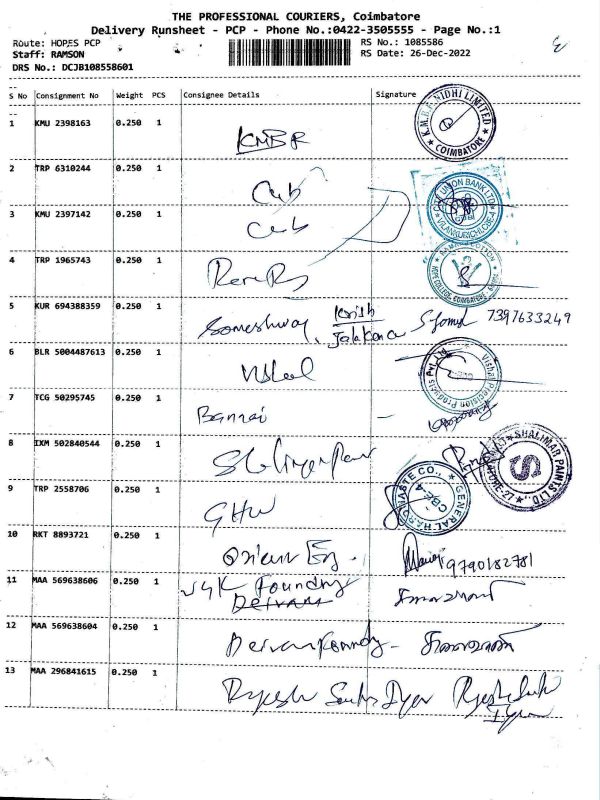 THE PROFESSIONAL COURIERS, Coimbatore
Delivery Runsheet - PCP - Phone No.:0422-3505555 - Page No.:1
Route: HOPES PCP
RS No.: 1085586
Staff: RAMSON
RS Date: 26-Dec-2022
DRS No.: DCJB108558601
S No Consignment No Weight PCS Consignee Details Signature
1 KMU 2398163 0.250 1 KMBR
K.M.B.R. NIDHI LIMITED COIMBATORE
2 TRP 6310244 0.250 1 Cub
CITY UNION BANK LTD
3 KMU 2397142 0.250 1 Cub
4 TRP 1965743 0.250 1
HOPE COLLEGE, COIMBATORE
5 KUR 694388359 0.250 1 Someshwar, 7397633249
6 BLR 5004487613 0.250 1
Vishal Precision Products Pvt. Ltd.
7 TCG 50295745 0.250 1 Bannari -
8 IXM 502840544 0.250 1
SHALIMAR PAINTS LTD
9 TRP 2558706 0.250 1 GHW
GENERAL HARD WASTE CO. CBE-4
10 RKT 8893721 0.250 1 9790182781
11 MAA 569638606 0.250 1 Foundry
12 MAA 569638604 0.250 1
13 MAA 296841615 0.250 1 Rajesh Iyer
Iyer